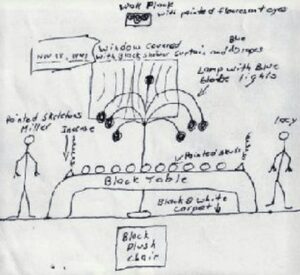 Wall Plaque
with painted fluorescent eyes
Nov 18, 1992
Window covered
with black shower curtain and drapes
Blue
Lamp with Blue
lights
Painted skeletons
Miller
Incense
Painted skull
Lacy
Black Table
Black & white
Carpet
Black
Plush
Chair